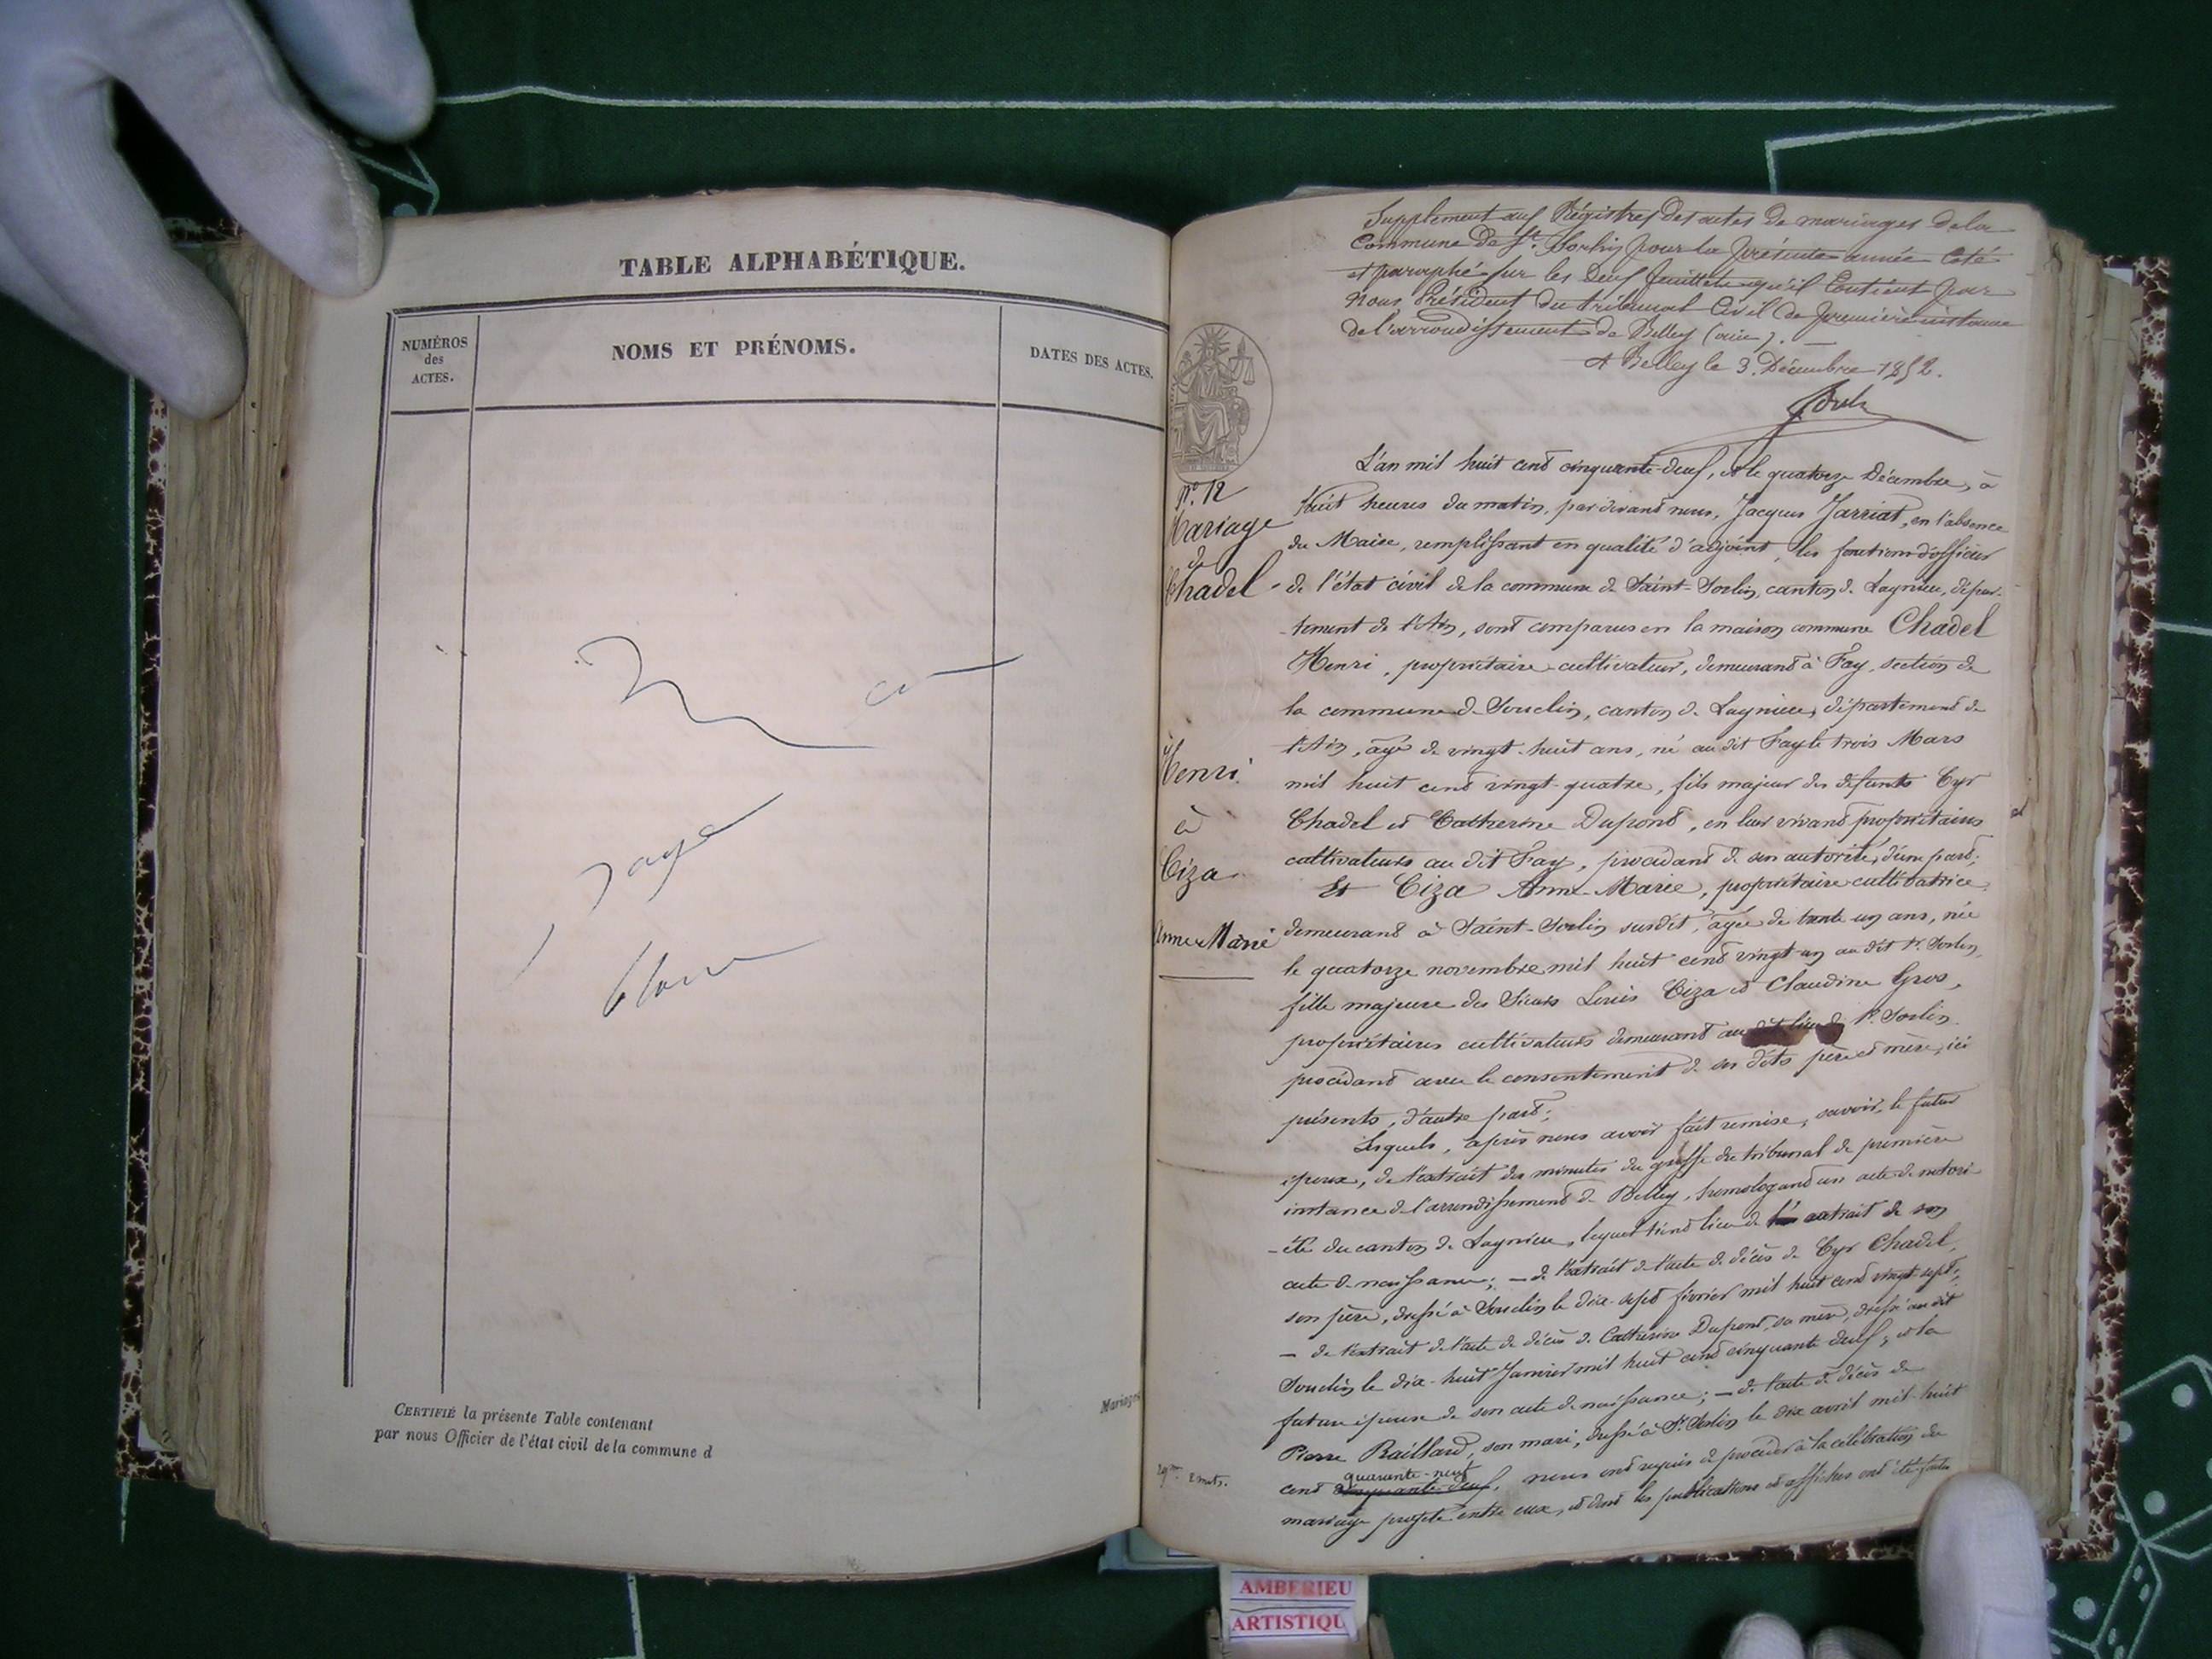 TABLE ALPHABÉTIQUE.
NUMÉROS
des
ACTES.
NOMS ET PRÉNOMS.
DATES DES ACTES.
CERTIFIÉ la présente Table contenant
par nous Officier de l'état civil de la commune d
Mariages
Supplement aux Régistres des actes de mariages de la
Commune de St. Sorlin pour la présente année Coté
et paraphé sur les Deux feuillets qu'il Contient par
Nous Président du tribunal Civil de première instance
de l'arrondissement de Belley (ain).
A Belley le 3. Décembre 1852.
n.º 12
Mariage
de
Chadel
Henri
à
Ciza
Anne Marie
L'an mil huit cent cinquante-deux, et le quatorze Décembre, à
Huit heures du matin, pardevant nous, Jacques Jarriat, en l'absence
du Maire, remplissant en qualité d'adjoint, les fonctions d'officier
de l'état civil de la commune de Saint-Sorlin, canton de Lagnieu, dépar-
-tement de l'Ain, sont comparus en la maison commune Chadel
Henri, propriétaire cultivateur, demeurant à Fay, section de
la commune de Souclin, canton de Lagnieu, département de
l'Ain, âgé de vingt-huit ans, né au dit Fay le trois Mars
mil huit cent vingt-quatre, fils majeur des défunts Cyr
Chadel et Catherine Dupont, en leur vivant propriétaires
cultivateurs au dit Fay, procédant de son autorité, d'une part;
Et Ciza Anne-Marie, propriétaire cultivatrice
demeurant à Saint-Sorlin susdit, âgée de trente un ans, née
le quatorze novembre mil huit cent vingt-un au dit St. Sorlin,
fille majeure des Sieurs Louis Ciza et Claudine Gros,
propriétaires cultivateurs demeurant au dit lieu de St. Sorlin
procédant avec le consentement de ses dits père et mère, ici
présents, d'autre part;
Lesquels, après nous avoir fait remise, savoir, le futur
époux, de l'extrait des minutes du greffe du tribunal de première
instance de l'arrondissement de Belley, homologuant un acte de notori-
-été du canton de Lagnieu, lequel tient lieu de extrait de son
acte de naissance; — de l'extrait de l'acte de décès de Cyr Chadel,
son père, dressé à Souclin le dix-sept février mil huit cent vingt sept;
— de l'extrait de l'acte de décès de Catherine Dupont, sa mère, dressé au dit
Souclin le dix-huit Janvier mil huit cent cinquante deux; et la
future épouse de son acte de naissance; — de l'acte de décès de
Pierre Raillard, son mari, dressé à St. Sorlin le dix avril mil-huit
quarante-neuf
cent cinquante-deux, nous ont requis de procéder à la célébration du
mariage projeté entre eux, et dont les publications et affiches ont été faites
2 mots.
AMBERIEU
ARTISTIQU